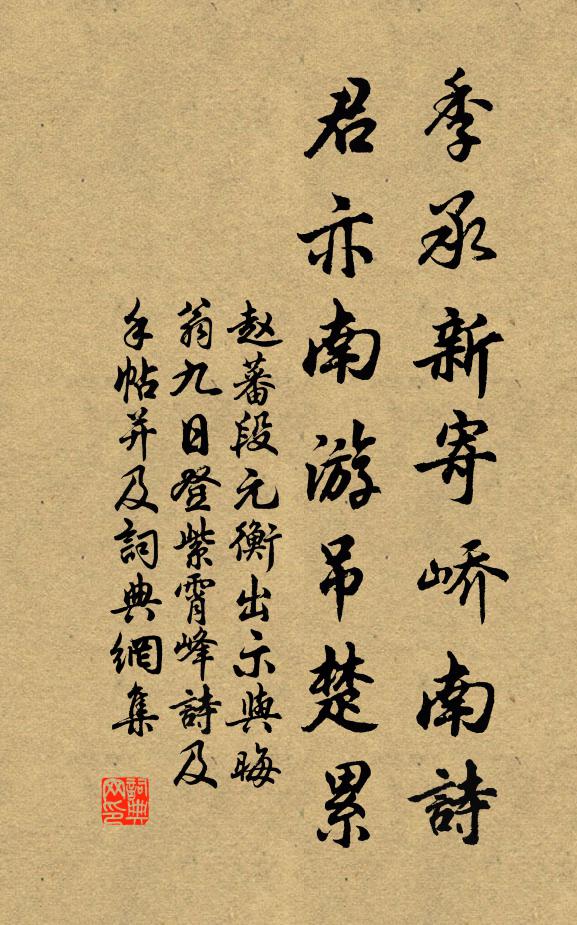 季承新寄峤南詩
君亦南游吊楚累
赵蕃段元衡出示與晦
翁九日登紫霄峰詩及
手帖并及詞典網集
詞典
网印